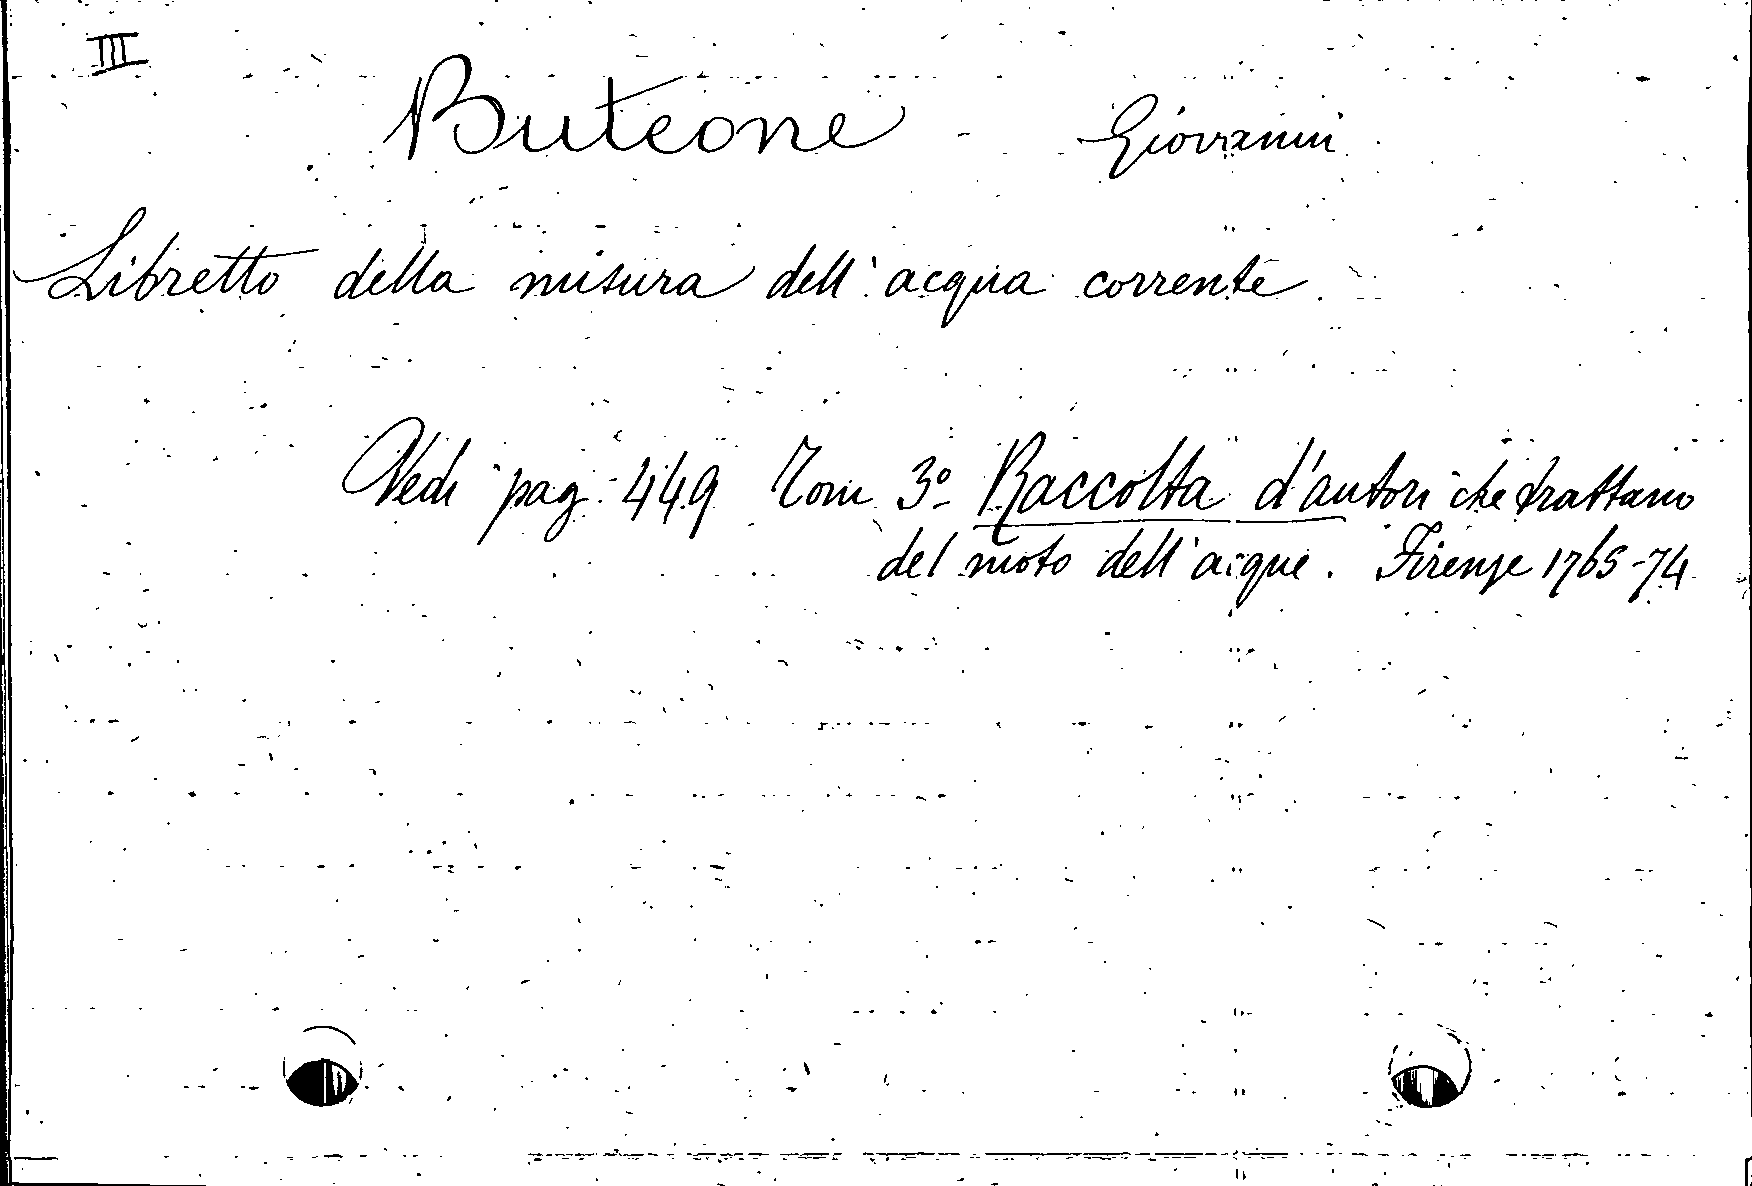 III
Buteone - Giovanni
Libretto della misura dell'acqua corrente.
Vedi pag. 449 Tom 3º Raccolta d'autori che trattano
del moto dell'acque. Firenze 1765-74